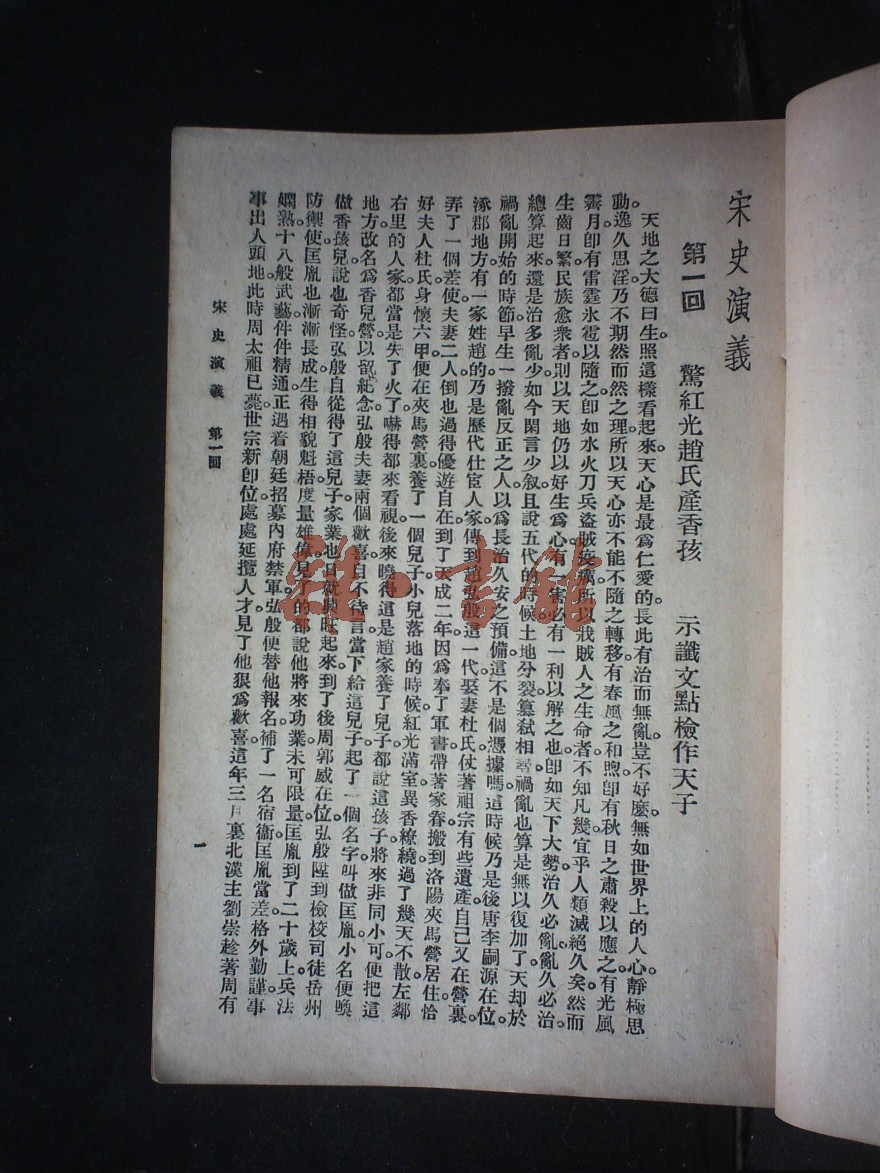 宋史演義
第一回 驚紅光趙氏產香孩 示讖文點檢作天子
天地之大德曰生。照這樣看起來。天心是最爲仁愛的。長此有治而無亂。豈不好麽。無如世界上的人心。靜極思
動。逸久思淫。乃不期然而然之理。所以天心亦不能不隨之轉移。有春風之和煦。卽有秋日之肅殺以應之。有光風
霽月。卽有雷霆氷雹以隨之。卽如水火刀兵。盜賊疫癘。所以戕賊人之生命者。不知凡幾。宜乎人類滅絕久矣。然而
生齒日繁。民族愈衆者。則以天地仍以好生爲心。有一害必有一利以解之也。卽如天下大勢。治久必亂。亂久必治。
總算起來。還是治多亂少。如今閑言少叙。且說五代的時候。土地分裂。篡弑相尋。禍亂也算是無以復加了。天却於
禍亂開始的時節。早生一撥亂反正之人。以爲長治久安之預備。這不是個憑據嗎。這時候乃是後唐李嗣源在位。
涿郡地方。有一家姓趙的。乃是歷代仕宦人家。傳到趙弘殷這一代。娶妻杜氏。仗著祖宗有些遺產。自己又在營裏。
弄了一個差使。夫妻二人。倒也過得優游自在。到了天成二年。因爲奉了軍書。帶著家眷。搬到洛陽夾馬營居住。恰
好夫人杜氏身懷六甲。便在夾馬營裏。養了一個兒子。小兒落地的時候。紅光滿室。異香繚繞。過了幾天不散。左鄰
右里的人家。都當是失了火了。嚇得都來看視。後來曉得這是趙家養了兒子。都說這孩子將來非同小可。便把這
地方改名爲香兒營。以留紀念。弘殷夫妻兩個歡喜。自不待言。當下給這兒子起了一個名字。叫做匡胤。小名便喚
做香孩兒。說也奇怪。弘殷自從得了這兒子。家業也日就興旺起來。到了後周郭威在位。弘殷陞到檢校司徒岳州
防禦使。匡胤也漸漸長成。生得相貌魁梧。度量雄偉。見了的都說他將來功業未可限量。匡胤到了二十歲上。兵法
嫻熟。十八般武藝件件精通。正遇着朝廷招募內府禁軍。弘殷便替他報名。補了一名宿衞。匡胤當差。格外勤謹。事
事出人頭地。此時周太祖已薨。世宗新卽位。處處延攬人才。見了他狠爲歡喜。這年三月裏。北漢主劉崇趁著周有
宋史演義 第一回
一